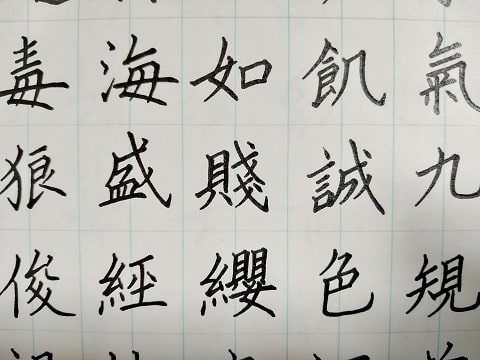 毒海如飢氣
狼盛賤誠九
俊經纓色規